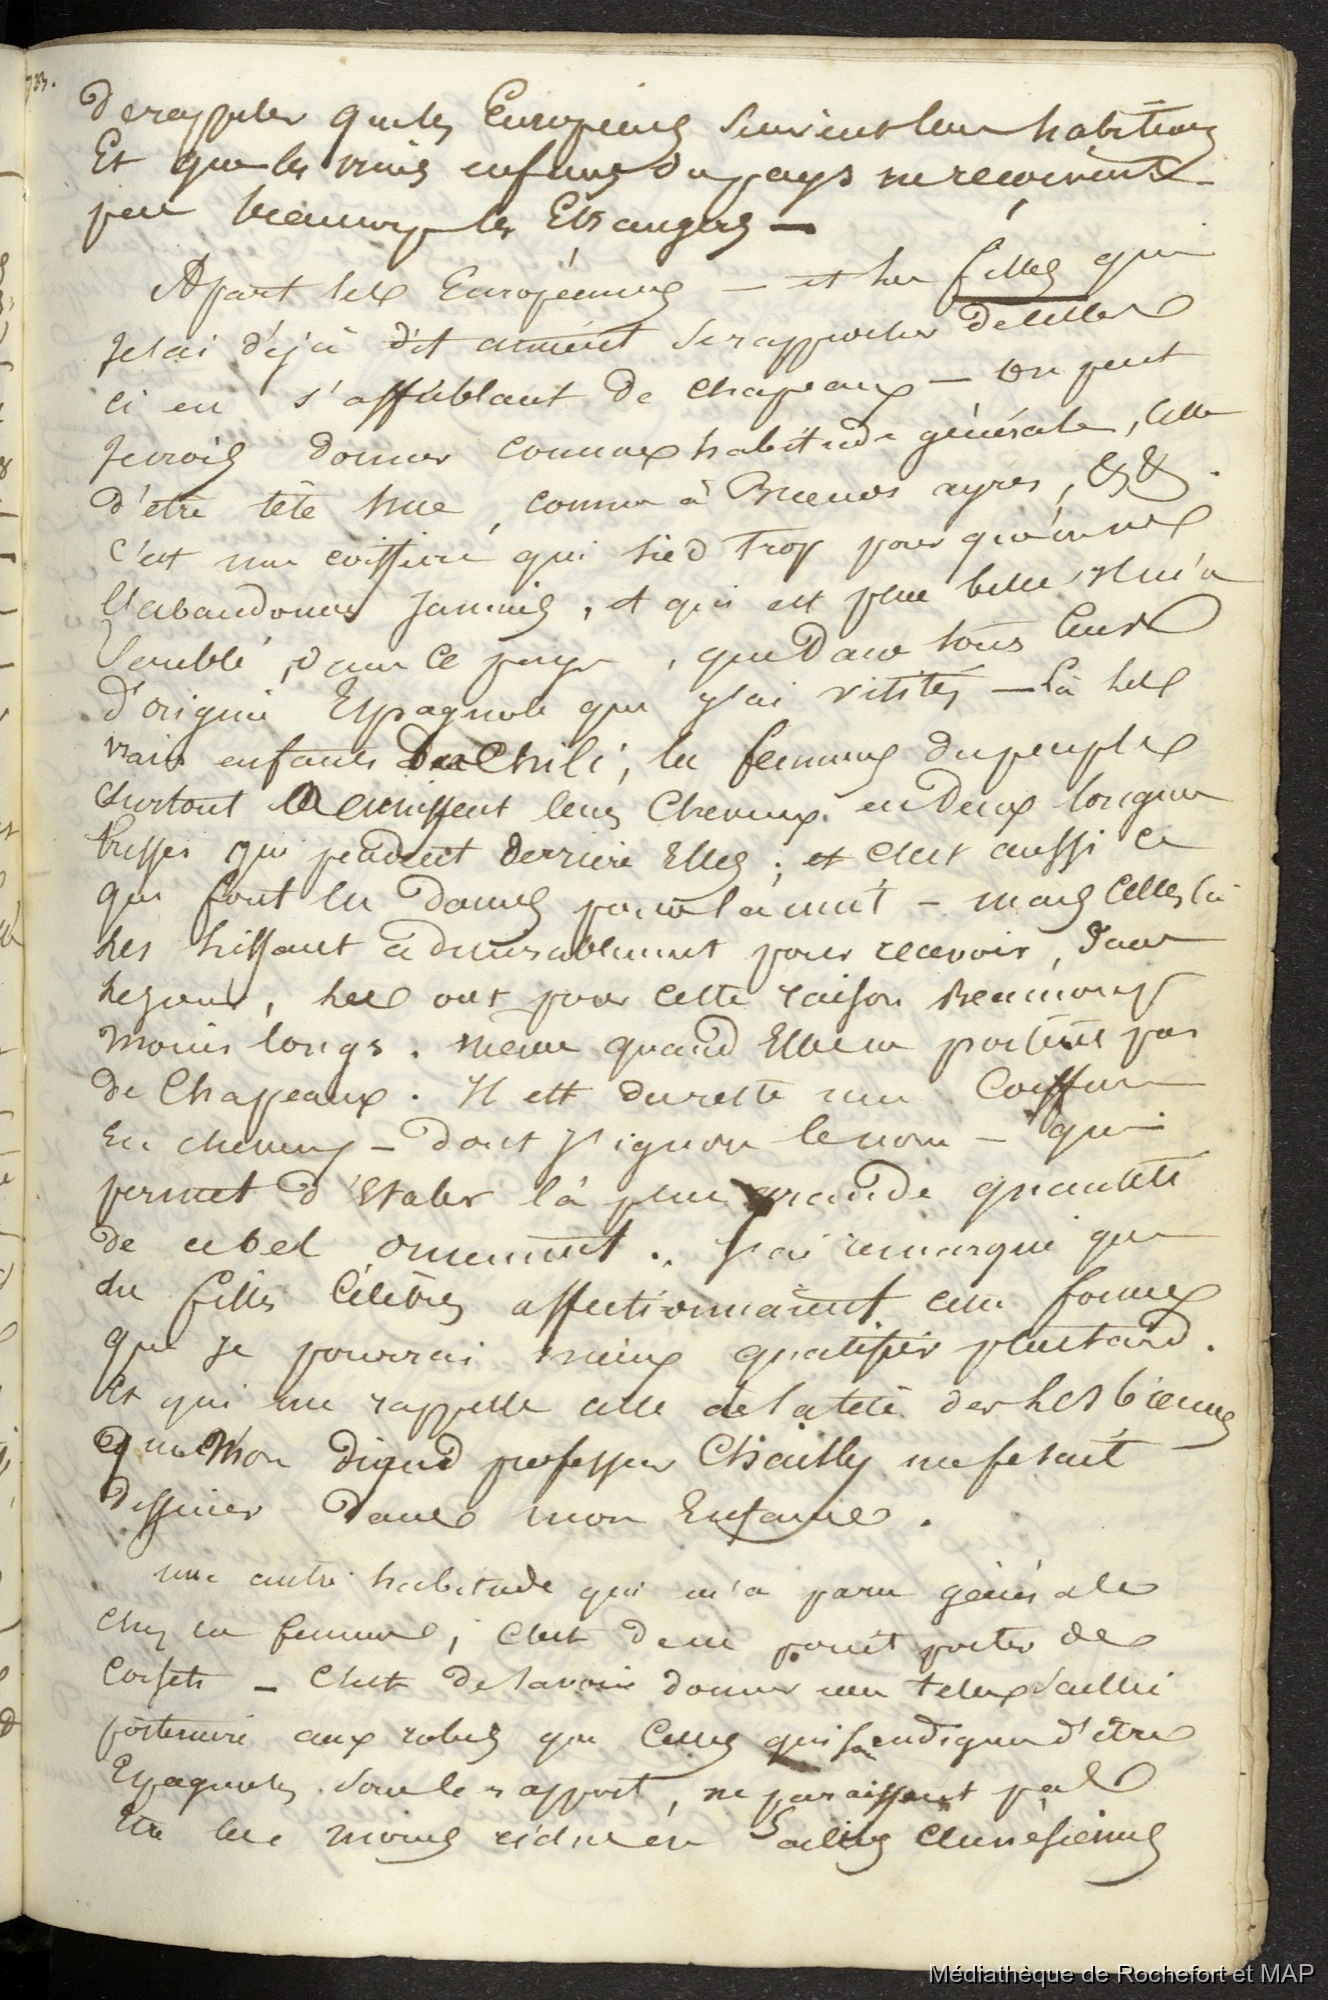 de rappeler que les Européens suivent leur habitudes
Et que les vrais enfans du pays ne recoivent
pas beaucoup les Etrangers —
Apart les Européennes — et les filles qui
je l'ai déjà dit aiment se rapprocher de celles
ci en s'affublant de chapeaux — on peut
je crois donner comme habitude générale, celle
d'etre tête nue, comme à Buenos ayres, &&.
C'est une coiffure qui sied trop pour qu'on ne
l'abandonne jamais, et qui est plus belle il m'a
semblé, dans ce pays, que dans tous ceux
d'origine Espagnole que j'ai visités — là les
vrais enfants du Chili, les femmes du peuple
surtout réunissent leurs cheveux en deux longues
tresses qui pendent derrière Elles ; et c'est aussi ce
que font les dames pour la nuit — mais celles là
les hissant admirablement pour recevoir, dans
le jour, les ont pour cette raison beaucoup
moins longs. même quand Elles ne portent pas
de Chapeaux. Il est du reste une Coiffure
En cheveux — dont j'ignore le nom — qui
permet d'Etaler la plus grande quantité
de ce bel ornement.. J'ai remarqué que
les filles Célèbres affectionnaient cette forme
que je pourrai mieux qualifier plus tard.
Et qui me rappelle celle de la tête des Lesbiennes
que Mon digne professeur Chailly me fesait
dessiner dans mon Enfance.
une autre habitude qui m'a paru générale
chez les femmes, c'est de ne point porter de
Corsets — C'est de savoir donner une telle saillie
postérieure aux robes que Celles qui sont dignes d'être
Espagnoles sous le rapport, ne paraissent pas
Etre les moins
Médiathèque de Rochefort et MAP